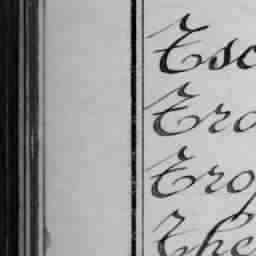 Tsc
Tro
Trop
The